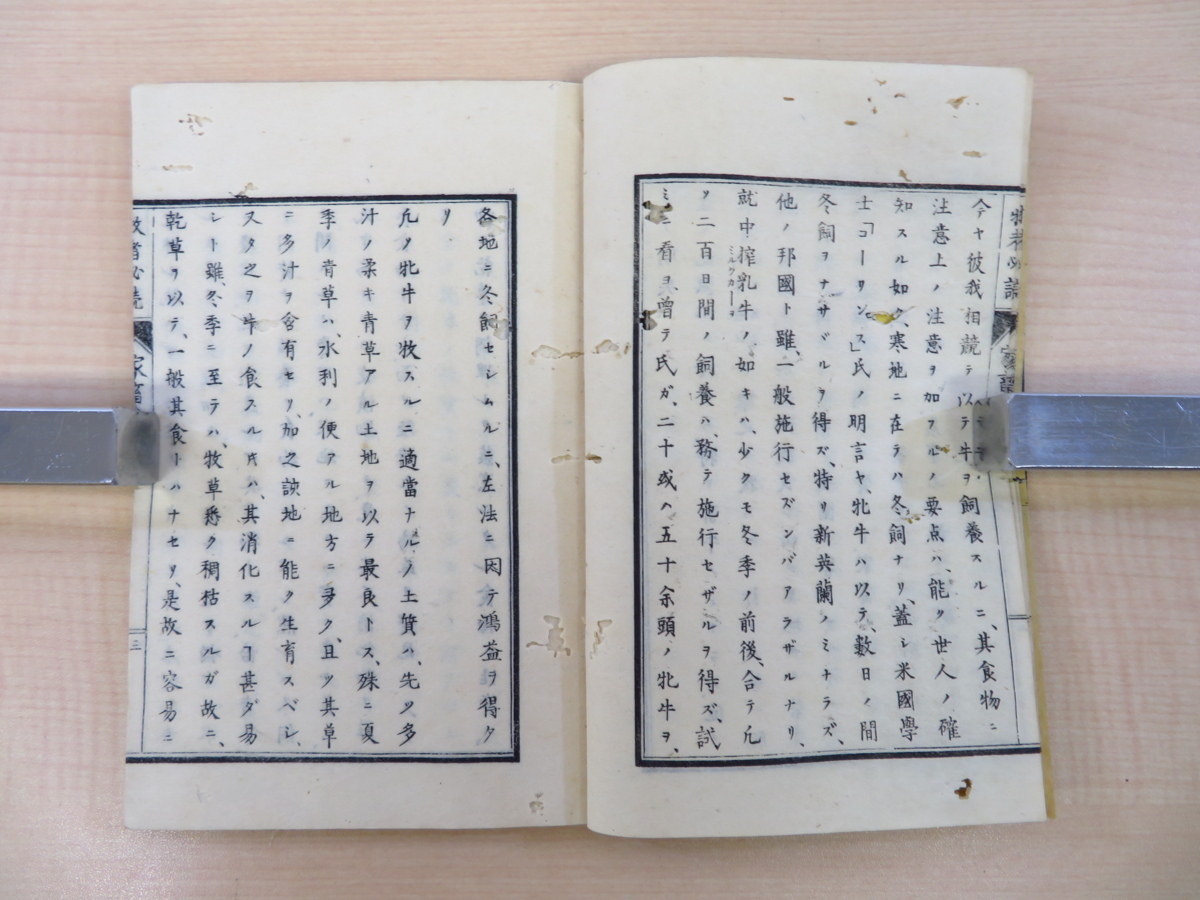 今ヤ彼我相競テ以テ牛ヲ飼養スルニ、其食物ニ
注意上ノ注意ヲ加フルノ要点ハ、能ク世人ノ確
知スル如ク、寒地ニ在ラハ冬飼ナリ、蓋シ米國學
士「コーリンス」氏ノ明言ヤ、牝牛ハ以テ、數日ノ間
冬飼ヲナサヾルヲ得ズ、特リ新英蘭ノミナラズ、
他ノ邦國ト雖、一般施行セズンバアラザルナリ、
就中搾乳牛ノ如キハ、少クモ冬季ノ前後、合テ凡
ミルクカーヲ
ソ二百日間ノ飼養ハ、務テ施行セザルヲ得ズ、試
ミニ看ヨ、曽テ氏ガ、二十或ハ五十余頭ノ牝牛ヲ、
各地ニ冬飼セシムルニ、左法ニ因テ鴻益ヲ得タ
リ、
凡ソ牝牛ヲ牧スルニ適當ナルノ土質ハ、先ツ多
汁ノ柔キ青草アル土地ヲ以テ最良トス、殊ニ夏
季ノ青草ハ、水利ノ便アル地方ニ多ク、且ツ其草
ニ多汁ヲ含有セリ、加之該地ニ能ク生育スベシ、
又タ之ヲ牛ノ食スル片ハ、其消化スルヿ甚ダ易
シト雖、冬季ニ至テハ、牧草悉ク稠枯スルガ故ニ、
乾草ヲ以テ、一般其食トハナセリ、是故ニ容易ニ
牧者必読
家畜
三